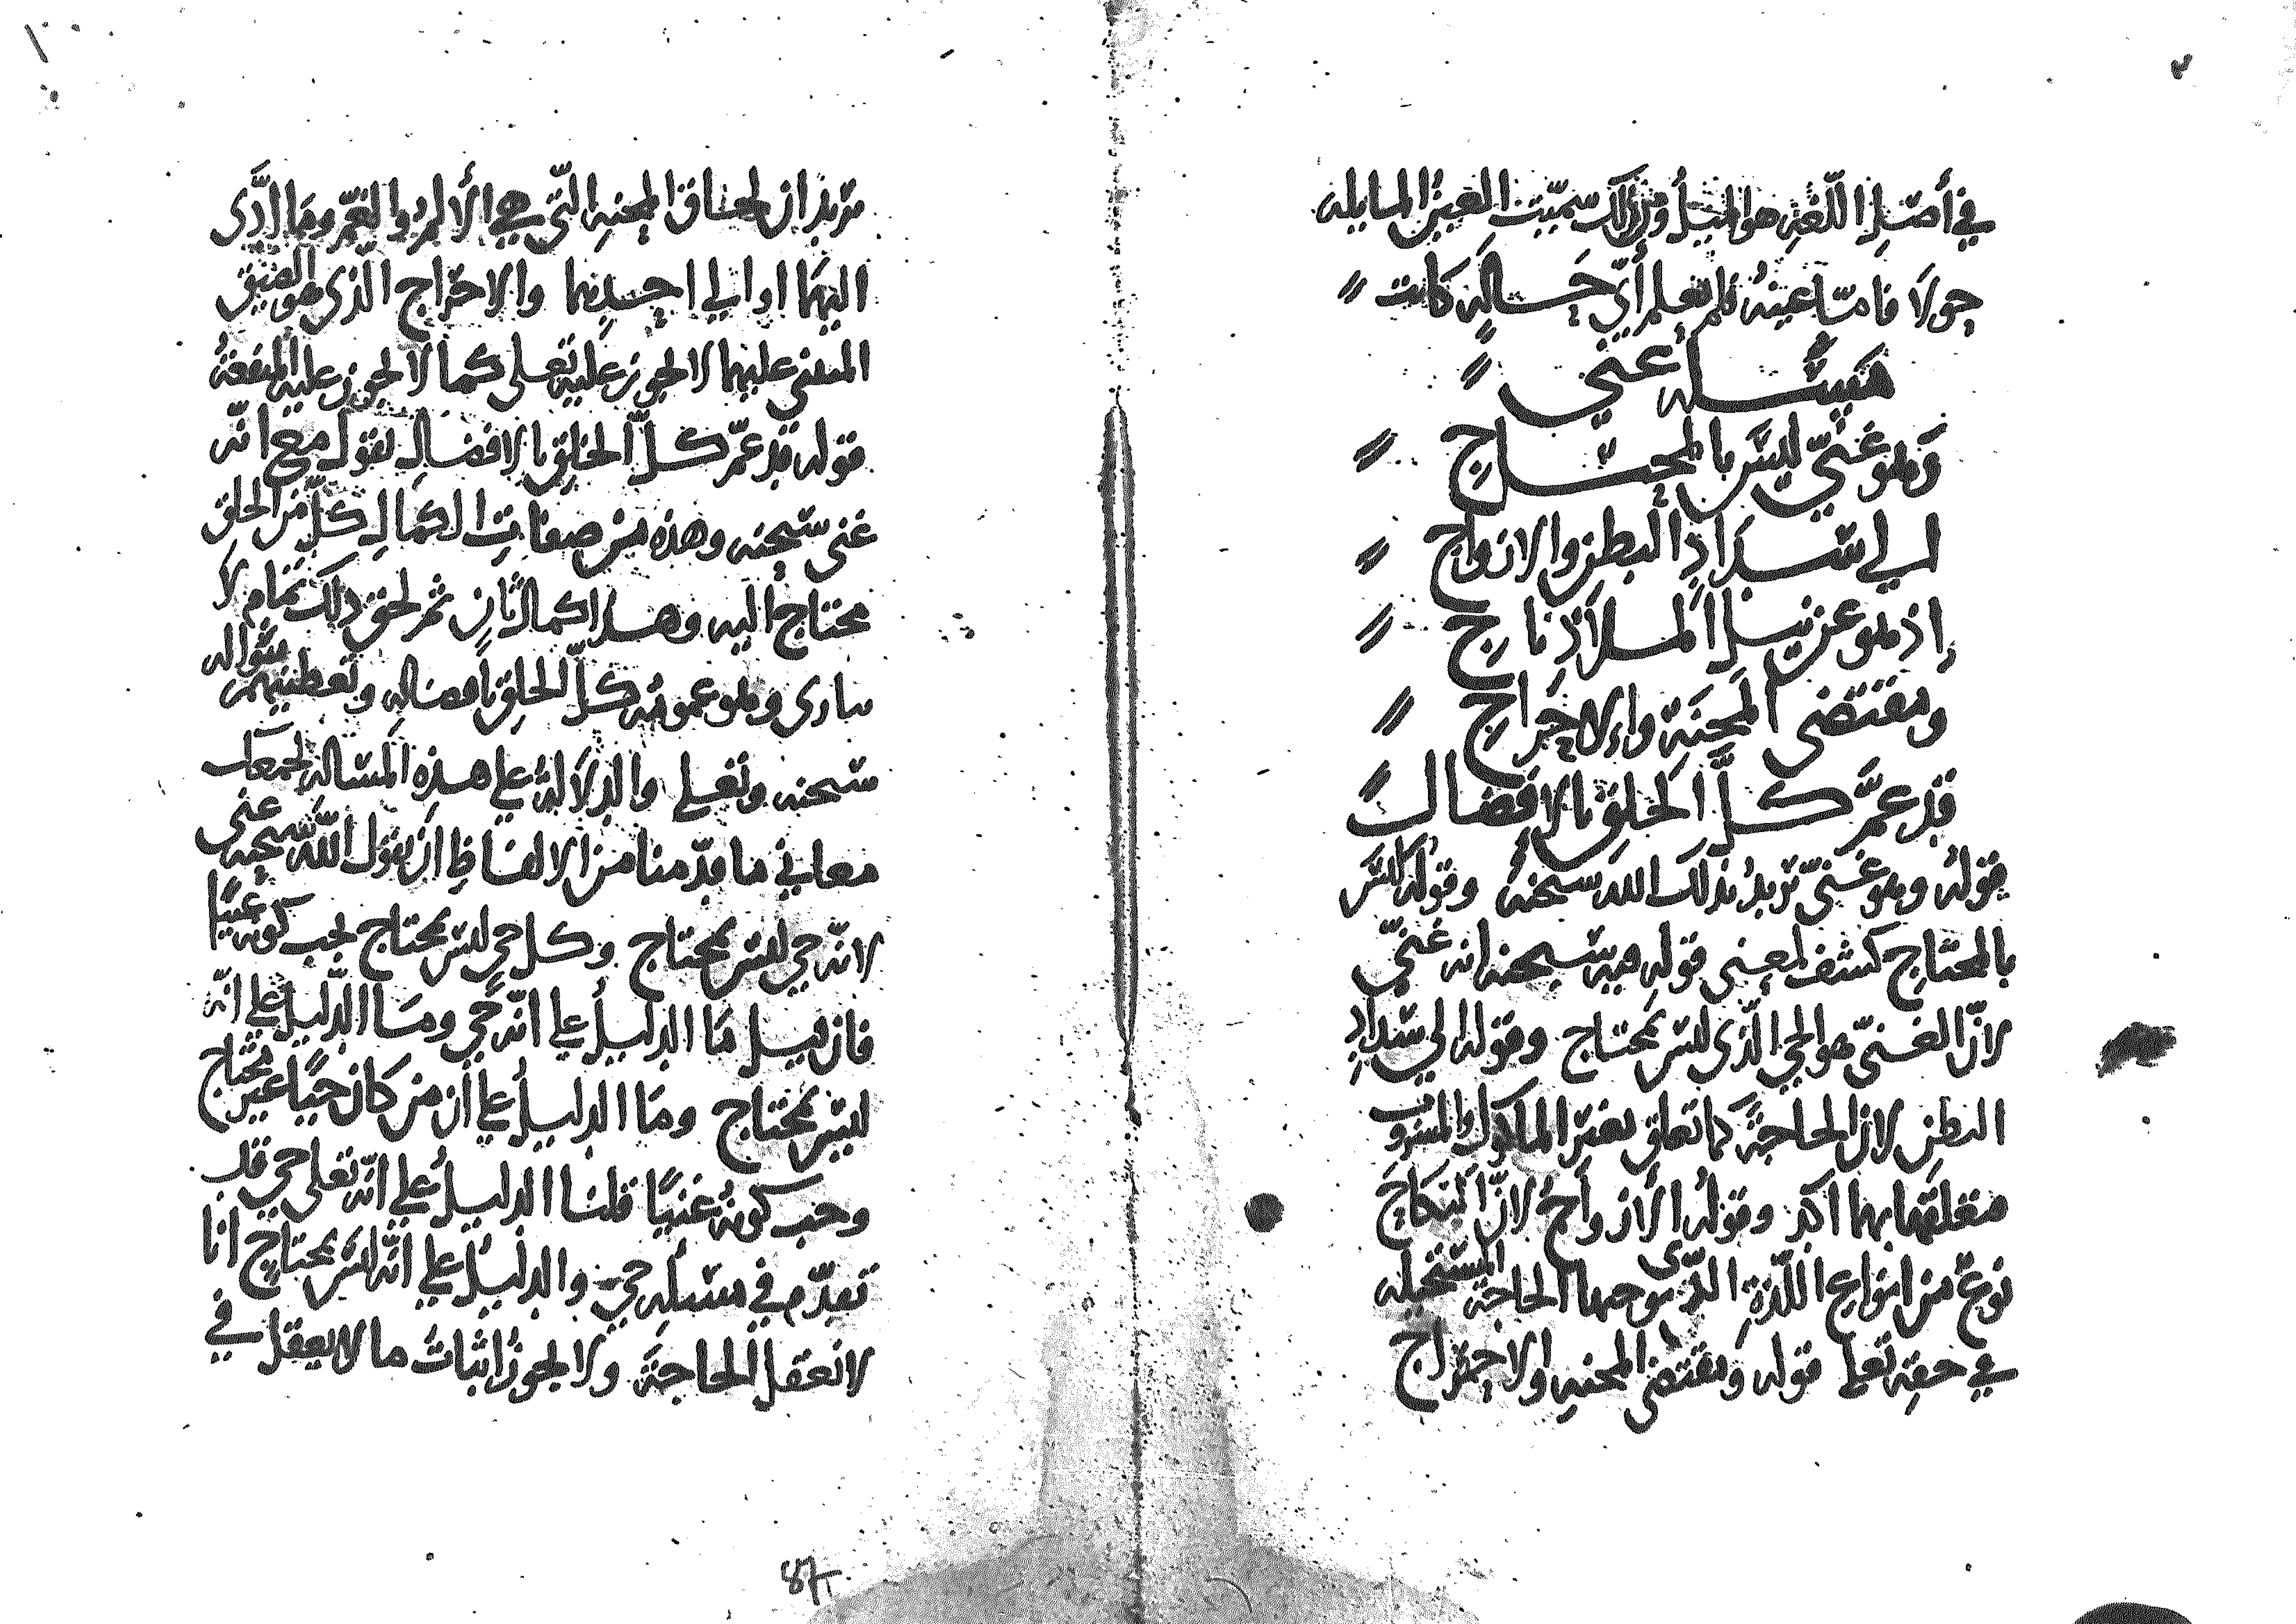 في أصل اللغة هو الميل ولذلك سميت العين المايله
حولا فاما عينه فلم نعلم أي حاله كانت
مسئلة غني
وهو غني ليس بالمحتاج
الى سداد البطن والازواج
إذ هو عن نيل الملاذ ناج
ومقتضى المحنة والإحراج
قد عم كل الخلق بالافضال
قوله وهو غني نريد بذلك الله سبحنه وقوله ليس
بالمحتاج كشف لمعنى قوله فيه سبحنه انه غني
لان الغني هو الحي الذي ليس بمحتاج وقوله الى سداد
البطن لان الحاجة كما تعلق بغير الماكول والمشروب
فتعلقها بهما اكد وقوله الازواج لان النكاح
نوع من انواع اللذة الذي توجبها الحاجة المستحيله
في حقه تعلى قوله ومقتضى المحنه والاحراج
نريد ان لحاق المحنه التي هي الألم والغم وما ادى
اليهما او الى احدهما والاحراج الذي هو الضيق
المبني عليهما لا يجوز عليه تعلى كما لا يجوز عليه المنفعة
قوله قد عم كل الخلق بالافضال نقول مع انه
غني سبحنه وهذه من صفات الكمال كل من الخلق
محتاج اليه وهذا كمال ثان ثم لحق ذلك تمام لا
وهو عمومه كل الخلق بافضاله وتغطيتهم بنواله
سبحنه وتعلى والدلالة على هذه المسالة
معاني ما قدمنا من الالفاظ ان نقول الله سبحنه غني
لانه حي ليس بمحتاج وكل حي ليس بمحتاج يجب كونه غنيا
فان قيل ما الدليل على انه حي وما الدليل على انه
ليس بمحتاج وما الدليل على أن من كان حيا غير محتاج
وجب كونه غنيا قلنا الدليل على انه تعلى حي قد
تقدم في مسئلة حي والدليل على انه ليس بمحتاج انا
لا نعقل الحاجة ولا يجوز اثبات ما لا يعقل في
87